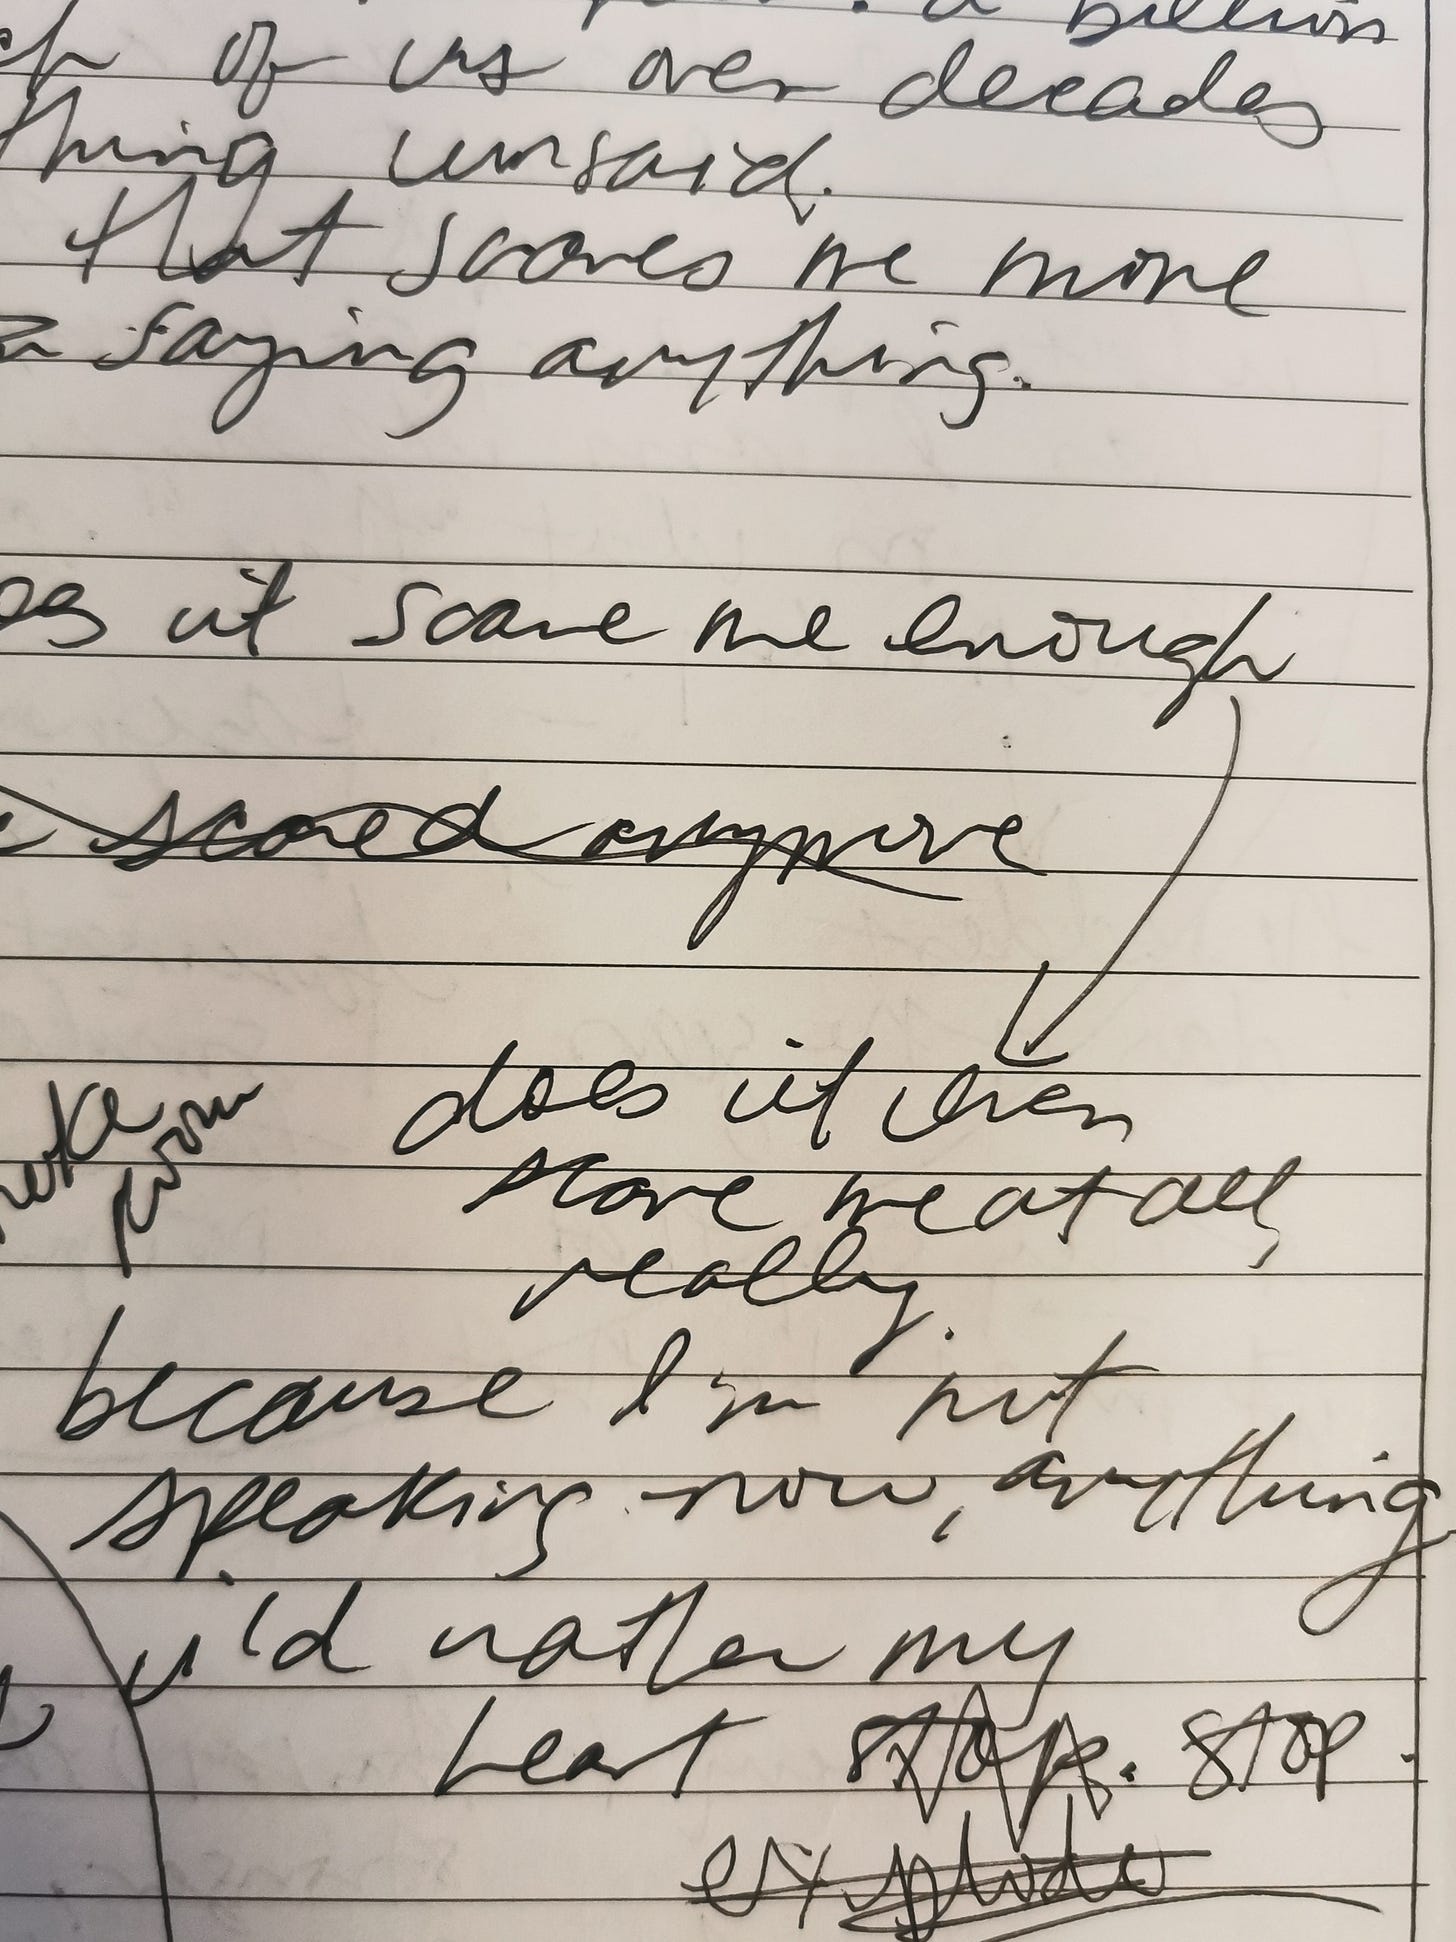 a billion
of us over decades
thing unsaid.
that scares me more
saying anything.
it scare me enough
scared anymore
does it even
scare me at all,
really.
poem
because I'm not
speaking now, anything
i'd rather my
heart stops. stop.
explode